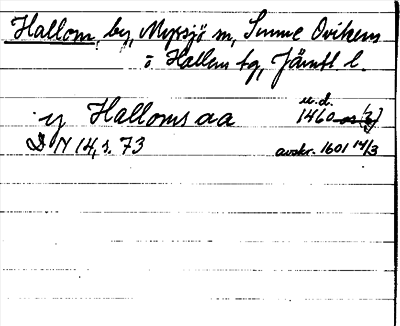 Hallom, by, Myssjö sn, Sunne Ovikens
o Hallens tg, Jämtl. l.
u.d.
ij Halloms aa 1460
DN 14, s. 73 avskr. 1601 14/3